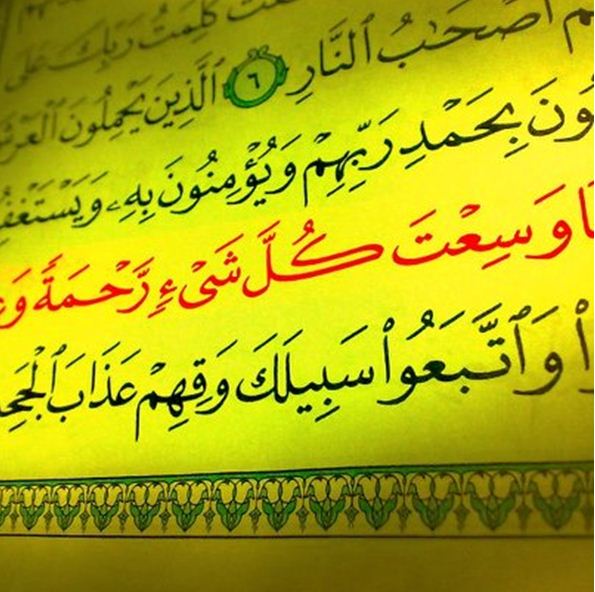 كَلِمَتُ رَبِّكَ عَلَى
أَصْحَٰبُ ٱلنَّارِ ٦ ٱلَّذِينَ يَحْمِلُونَ ٱلْعَرْ
ونَ بِحَمْدِ رَبِّهِمْ وَيُؤْمِنُونَ بِهِۦ وَيَسْتَغْفِ
ا وَسِعْتَ كُلَّ شَىْءٍ رَّحْمَةً وَعِ
وا۟ وَٱتَّبَعُوا۟ سَبِيلَكَ وَقِهِمْ عَذَابَ ٱلْجَحِ